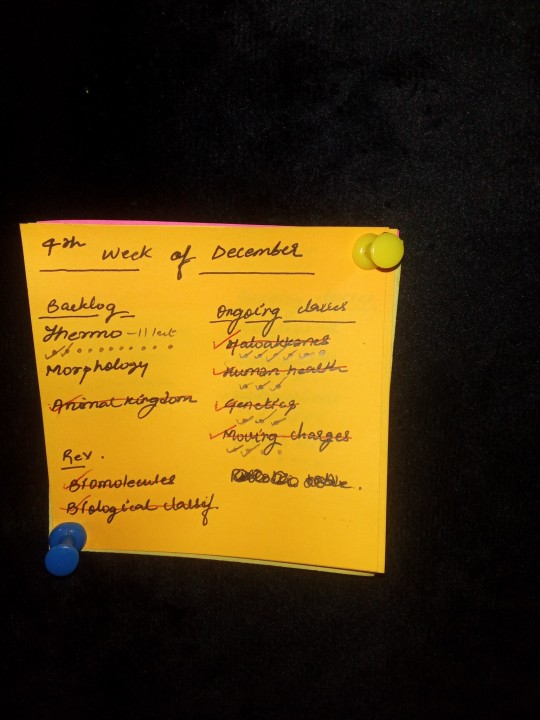 4th Week of December
Backlog
Thermo - 11 lect
Morphology
Animal kingdom
Rev.
Biomolecules
Biological classif.
Ongoing classes
Haloalkanes
Human health
Genetics
Moving charges